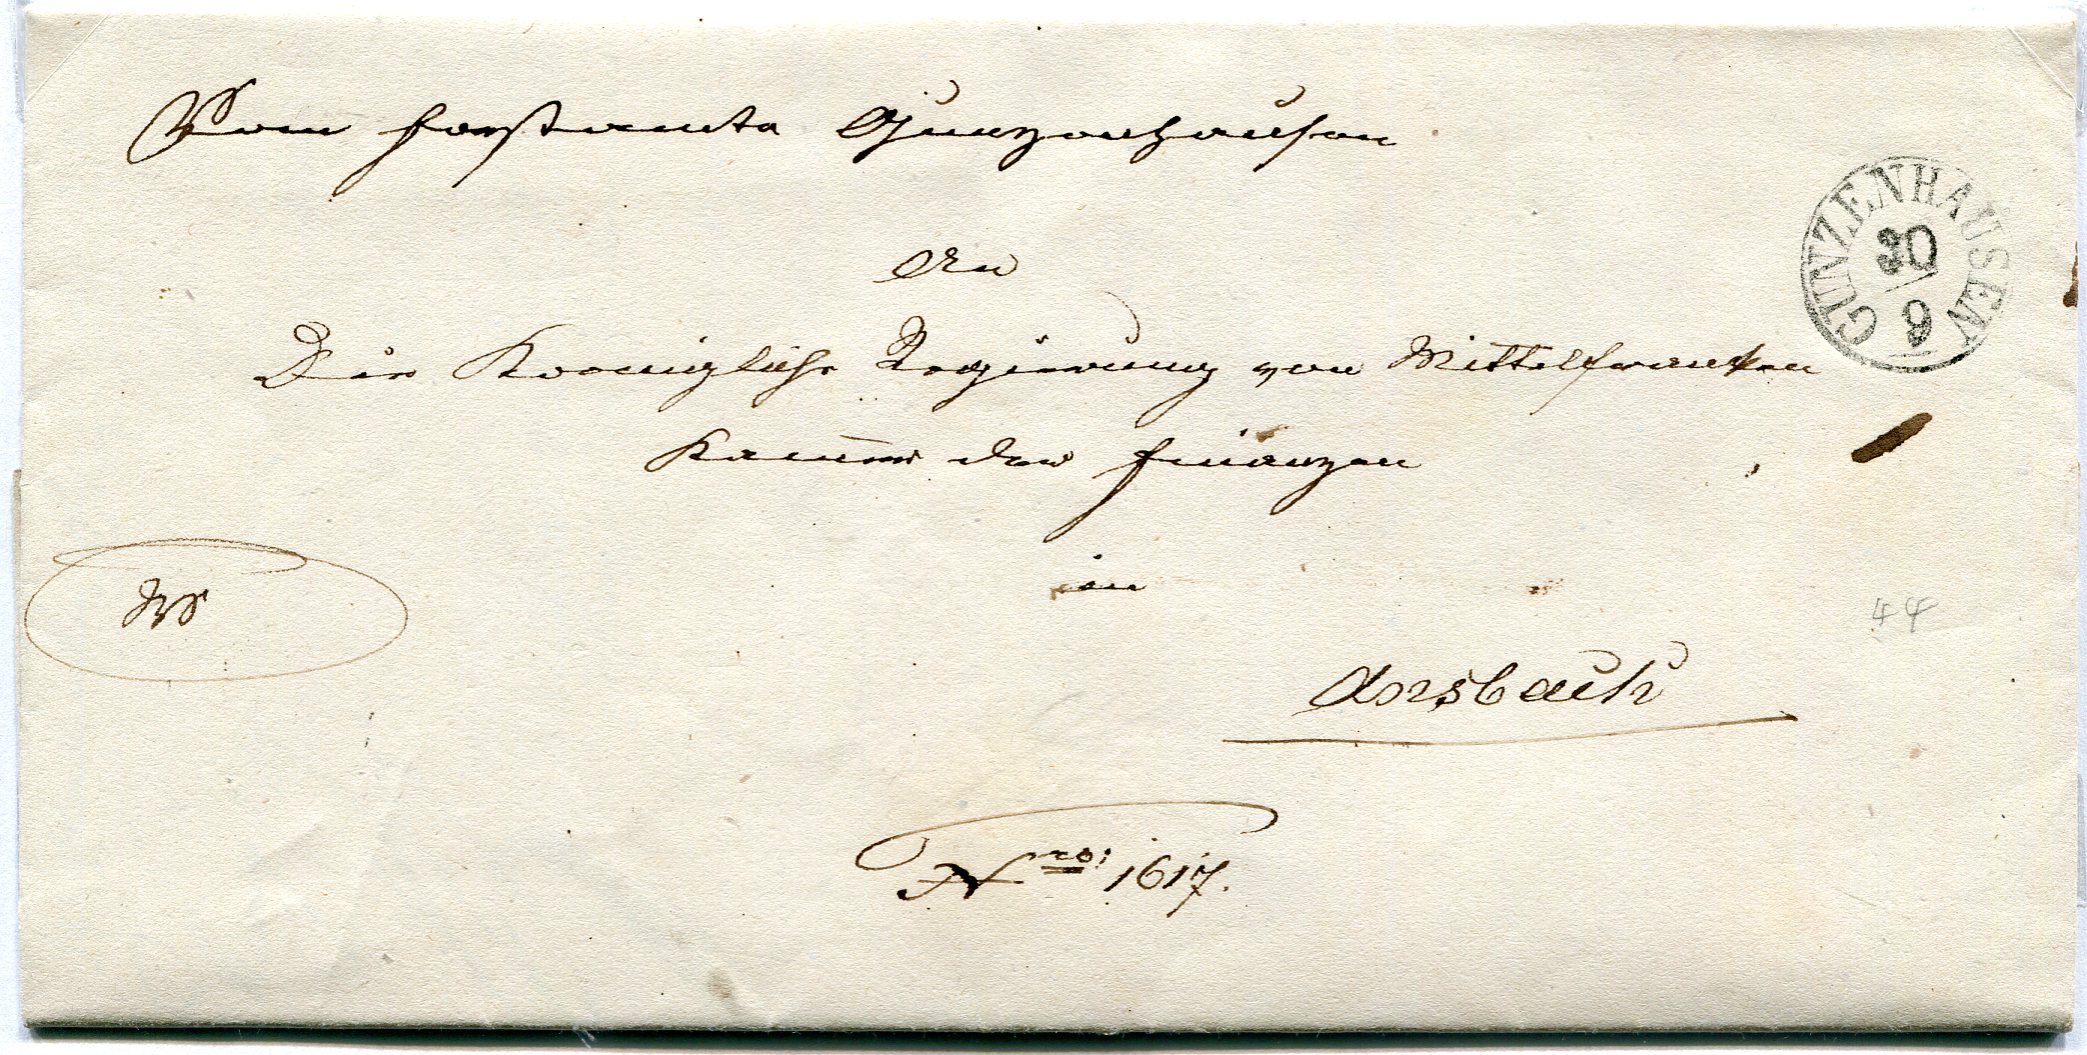 Vom Forstamte Gunzenhausen
GUNZENHAUSEN
30
9
An
Die Koenigliche Regierung von Mittelfranken
Kam̅er der Finanzen
in
RS
44
Ansbach
Nro: 1617.